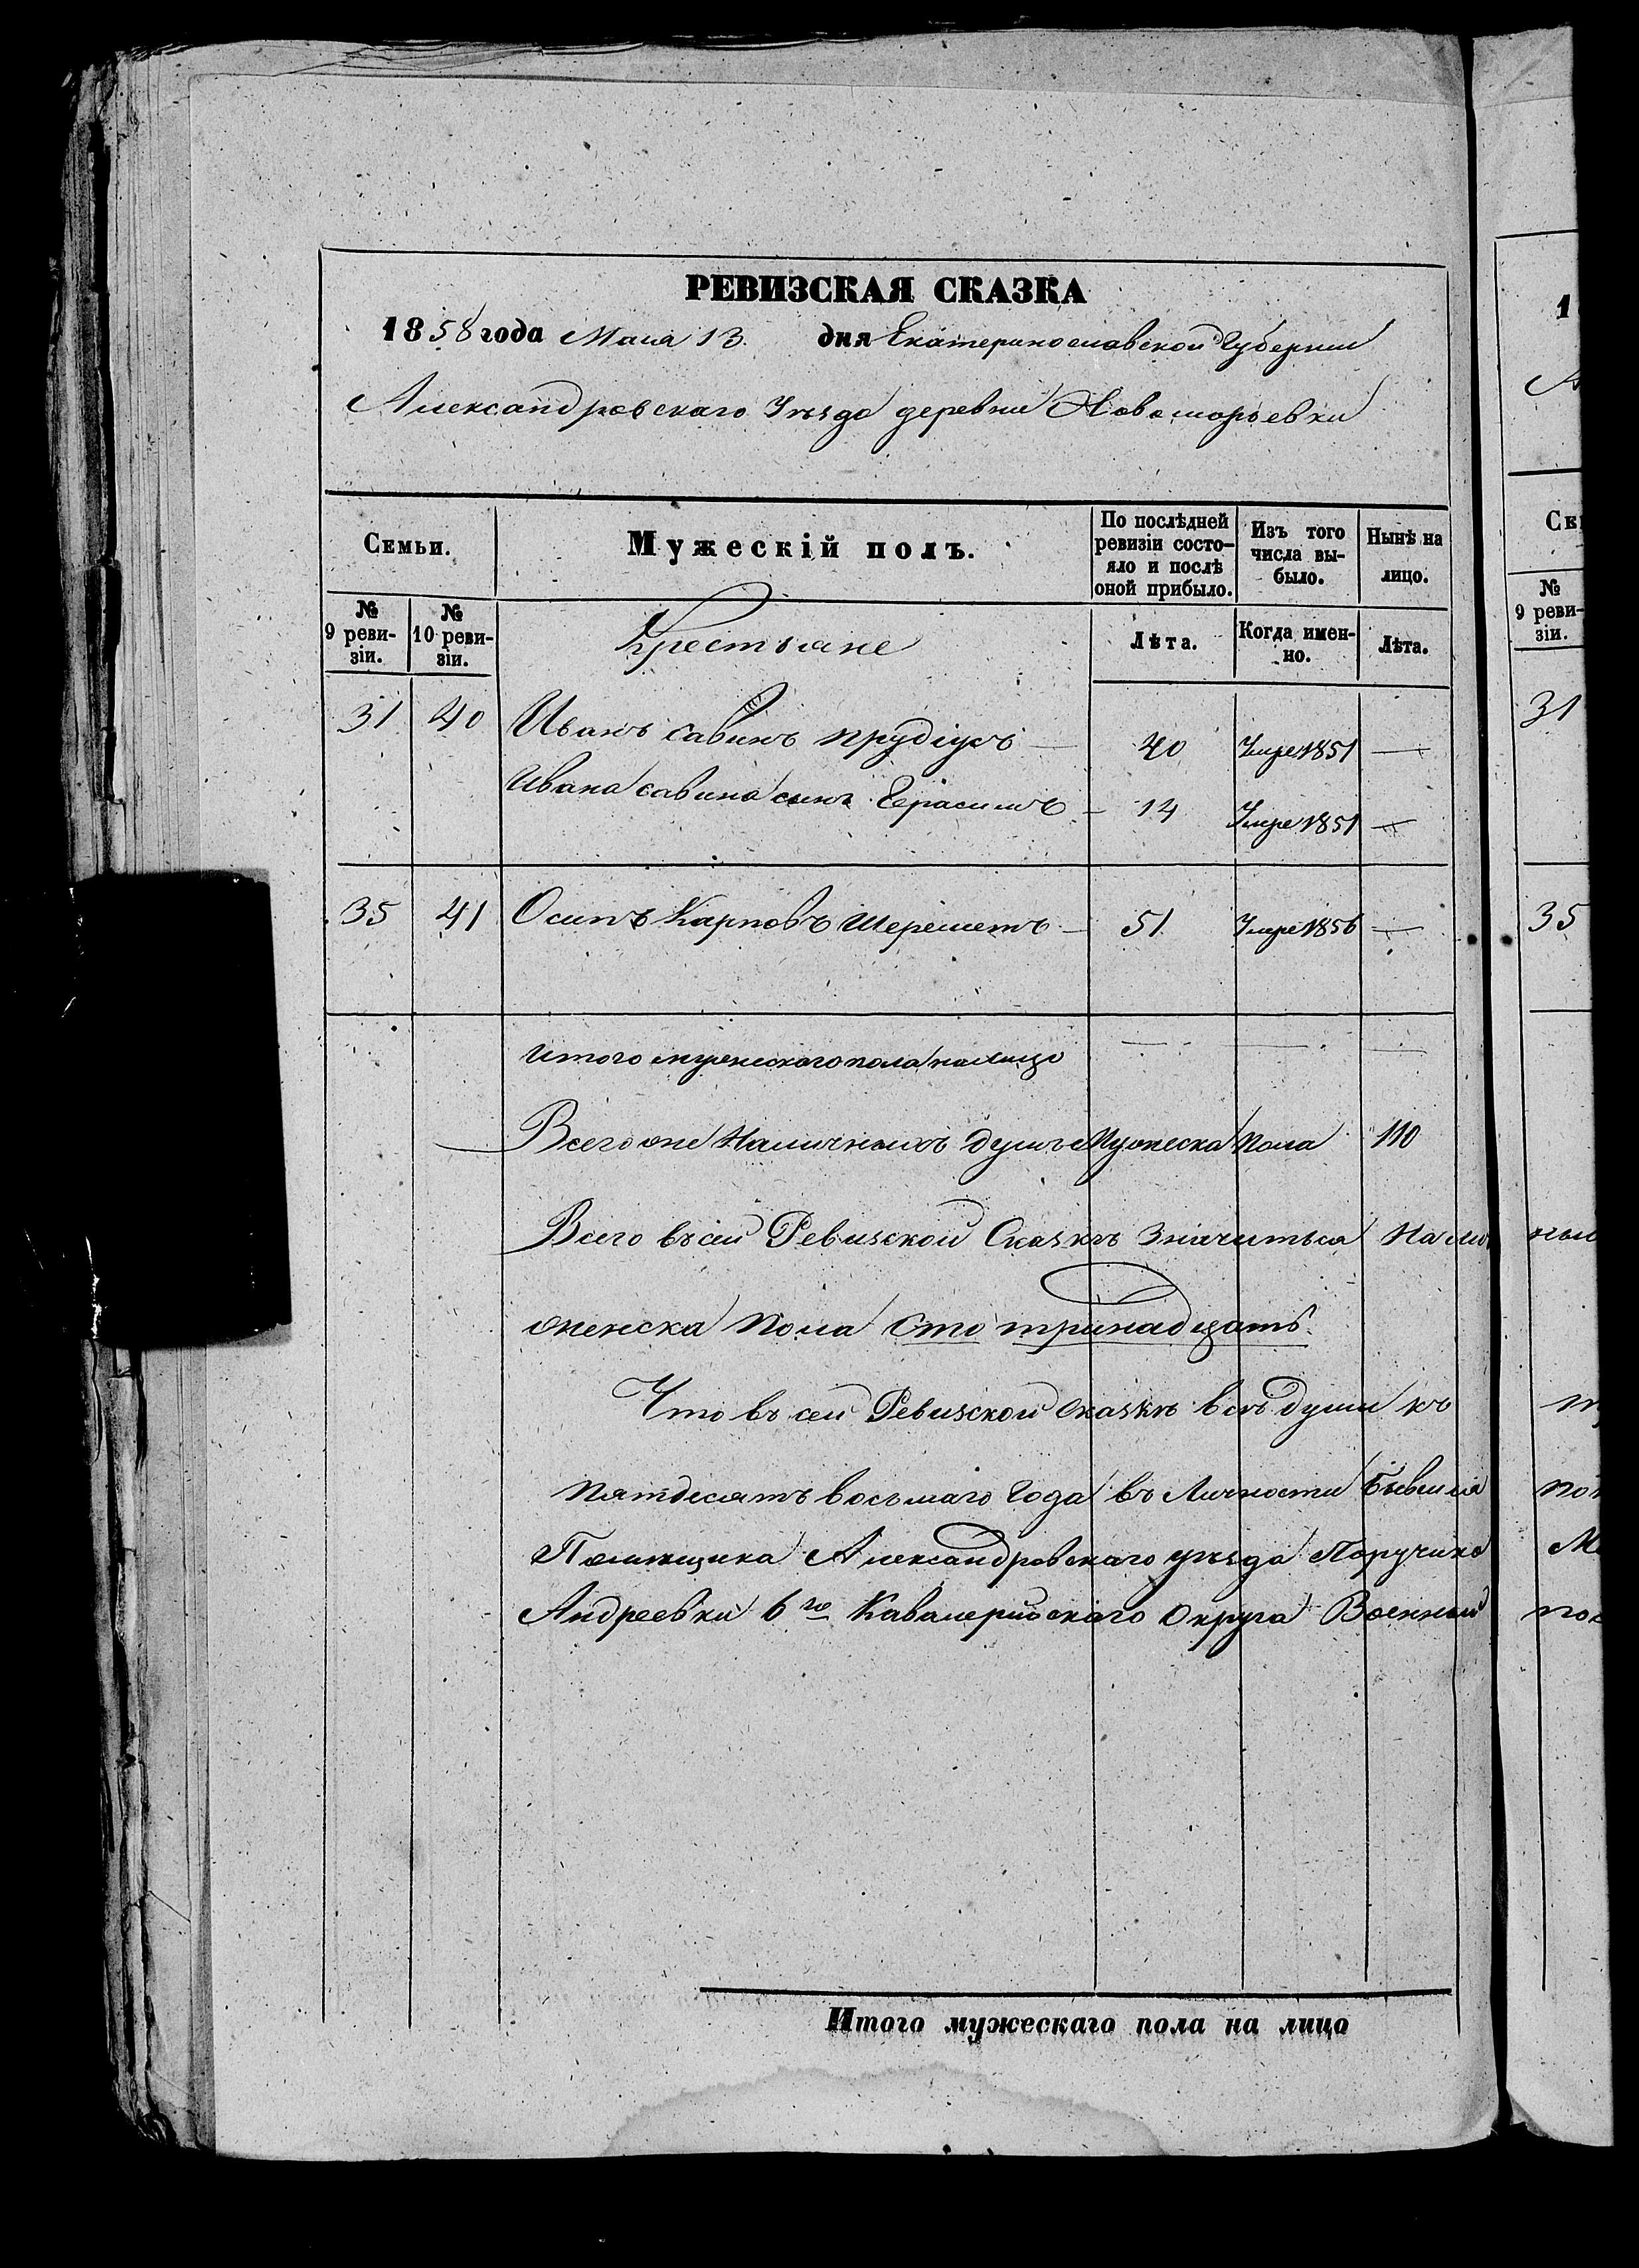 РЕВИЗСКАЯ СКАЗКА
1858 года Мая 13. дня Екатеринославской Губернии
Александровскаго Уѣзда деревни
Семьи.
Мужескій полъ.
По послѣдней ревизіи состо-
яло и послѣ
оной прибыло.
Изъ того
числа вы-
было.
Нынѣ на
лицо.
№
9 реви-
зіи.
№
10 реви-
зіи.
Крестьяне
Лѣта.
Когда имен-
но.
Лѣта.
31 40 Иванъ Савинъ Прудіусъ — 40 Умре 1851 —
Ивана Савина сынъ Герасимъ — 14 Умре 1851 —
35 41 Осипъ Карповъ Шереметъ — 51 Умре 1856 —
Итого мужескаго пола налицо — — —
Всего оне Наличныхъ душъ Мужеска Пола 110
Всего въ сей Ревизской Сказкѣ Значиться На
женска Пола Сто тринадцать.
Что въ сей Ревизской Сказкѣ всѣ души къ
Пятдесятъ восьмаго Года въ Личности Бывшия
Помѣщика Александровскаго уѣзда Поручика
Андреевки 6го Кавалерійскаго Округа Военный
Итого мужескаго пола на лицо
1
Се
№
9 реви-
зіи.
31
35